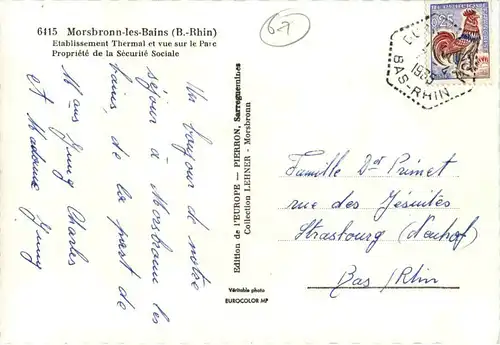 6415 Morsbronn-les-Bains (B.-Rhin)
Etablissement Thermal et vue sur le Parc
Propriété de la Sécurité Sociale
6-7
Un bonjour de notre
séjour à Morsbronn les
bains, de la part de
Mons Jung Charles
et Madame Jung
Edition de l'EUROPE — PIERRON, Sarreguemines
Collection LEHNER - Morsbronn
Véritable photo
EUROCOLOR MP
0,25
1965
BAS-RHIN
Famille Dr Primet
rue des Jésuites
Strasbourg (Neuhof)
Bas/Rhin